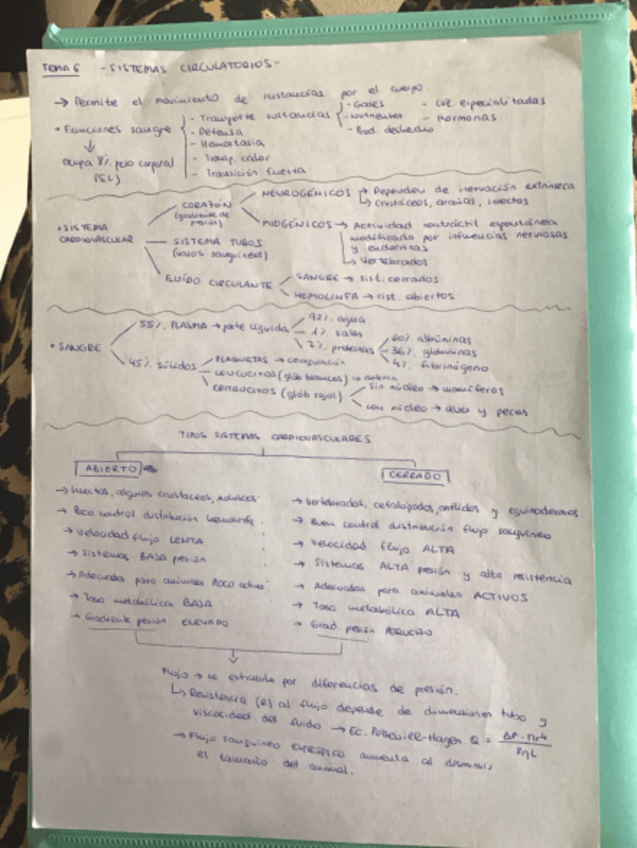 TEMA 6 - SISTEMAS CIRCULATORIOS -
→ Permite el movimiento de sustancias por el cuerpo.
• Funciones sangre - Transporte sustancias - Gases - Cél especializadas
- Nutrientes - Hormonas
- Prod. deshecho
- Defensa
- Hemostasia
- Transp. calor
- Transición fuerza
↓
ocupa 8% peso corporal
(5L)
• SISTEMA CARDIOVASCULAR
CORAZÓN
(gradientes de presión)
NEUROGÉNICOS → Dependen de inervación extrínseca
↳ crustáceos, arañas, insectos
MIOGÉNICOS → Actividad contráctil espontánea
modificada por influencias nerviosas
y endocrinas
↳ Vertebrados
SISTEMA TUBOS
(vasos sanguíneos)
FLUÍDO CIRCULANTE
SANGRE → sist. cerrados
HEMOLINFA → sist. abiertos
• SANGRE
55% PLASMA → parte líquida
92% agua
1% sales
7% proteínas
60% albúminas
36% globulinas
4% fibrinógeno
45% sólidos
PLAQUETAS → coagulación
LEUCOCITOS (glób blancos) → defensa
ERITROCITOS (glób rojos)
sin núcleo → mamíferos
con núcleo → aves y peces
TIPOS SISTEMAS CARDIOVASCULARES
ABIERTO
→ Insectos, algunos crustáceos, moluscos
→ Poco control distribución hemolinfa.
→ Velocidad flujo LENTA
→ Sistemas BAJA presión
→ Adecuada para animales Poco activos
→ Tasa metabólica BAJA
→ Gradiente presión ELEVADO
CERRADO
→ Vertebrados, cefalópodos, anélidos y equinodermos
→ Buen control distribución flujo sanguíneo
→ Velocidad flujo ALTA
→ Sistemas ALTA presión y alta resistencia
→ Adecuados para animales ACTIVOS
→ Tasa metabólica ALTA
→ Grad. presión PEQUEÑO
Flujo → se estimula por diferencias de presión.
↳ Resistencia (R) al flujo depende de dimensiones tubo y
viscosidad del fluido → Ec. Poiseuille-Hagen Q = ΔP · πr4 / 8ηL
→ Flujo sanguíneo específico aumenta al disminuir
el tamaño del animal.